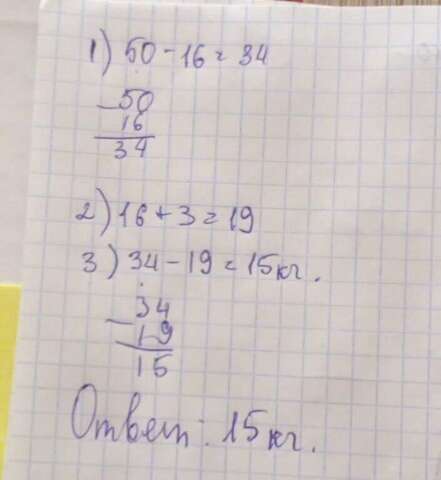 1) 50 - 16 = 34
- 50
16
34
2) 16 + 3 = 19
3) 34 - 19 = 15 кг.
- 34
19
15
Ответ: 15 кг.